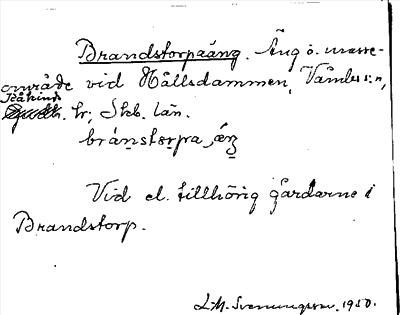 Brandstorpaäng. Äng o. mosse-
område vid Hållsdammen, Våmbs sn,
Kåkinds
Gudh. hr; Skb. län.
bránstɵrpa ǽŋ
Vid el. tillhörig gårdarne i
Brandstorp.
L.M. Svenungsson. 1950.